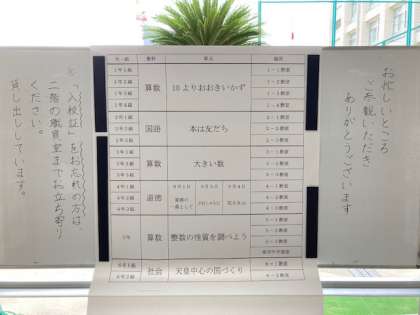 お忙しいところ
ご参観いただき
ありがとうございます
「入校証」をお忘れの方は、
二階の職員室までお立ち寄り
ください。
貸し出ししています。
年・組 教科 単元 場所
1年1組 1-1教室
1年2組 算数 10よりおおきいかず 1-2教室
1年3組 1-3教室
1年4組 1-4教室
2年1組 2-1教室
2年2組 国語 本は友だち 2-2教室
2年3組 2-3教室
3年1組 3-1教室
3年2組 算数 大きい数 3-2教室
3年3組 3-3教室
4年1組 4-1教室
4年2組 道徳 4-2教室
4年3組 4-3教室
5年 算数 整数の性質を調べよう
6年1組 社会 天皇中心の国づくり 6-1教室
6年2組 6-2教室